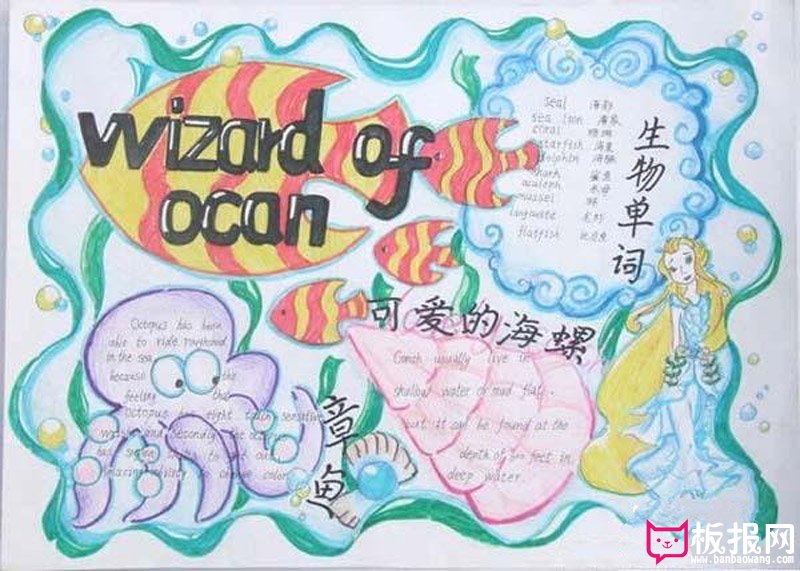 wizard of
ocan
seal 海豹
sea lion
coral 珊瑚
starfish 海星
dolphin 海豚
shark 鲨鱼
acaleph 水母
mussel 蚌
龙虾
flatfish 比目鱼
生物单词
可爱的海螺
Octopus has been
able to ride roughshod
in the sea
because the
feeling that
Octopus has eight touch sensitive
and Secondly the octopus
has
amazing ability to change color
章鱼
Conch usually live in
shallow water or mud flat.
but it can be found at the
depth of feet in
deep water.
板报网
www.banbaowang.com